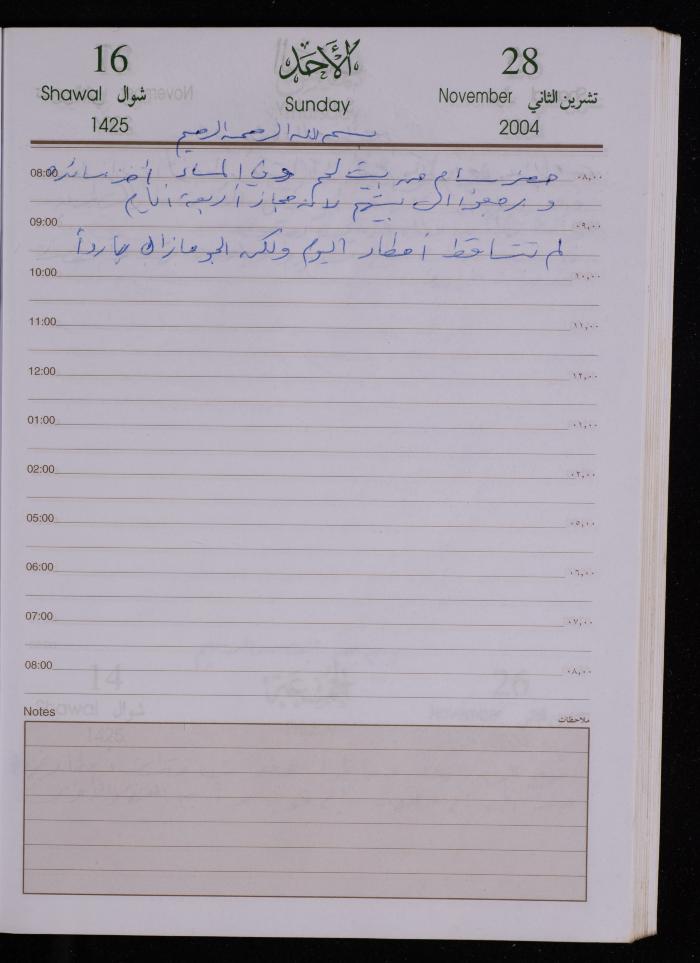 16 الأحد 28
Shawal شوال Sunday November تشرين الثاني
1425 2004
بسم الله الرحمن الرحيم
08:00 حضر بسام من بيت لحم وفي المساء أخذ سائده ٠٨,٠٠
و رجعوا الى بيتهم لانه مجاز أربعة ايام
09:00 ٠٩,٠٠
لم تتساقط أمطار اليوم ولكن الجو مازال بارداً
10:00 ١٠,٠٠
11:00 ١١,٠٠
12:00 ١٢,٠٠
01:00 ٠١,٠٠
02:00 ٠٢,٠٠
05:00 ٠٥,٠٠
06:00 ٠٦,٠٠
07:00 ٠٧,٠٠
08:00 ٠٨,٠٠
Notes ملاحظات